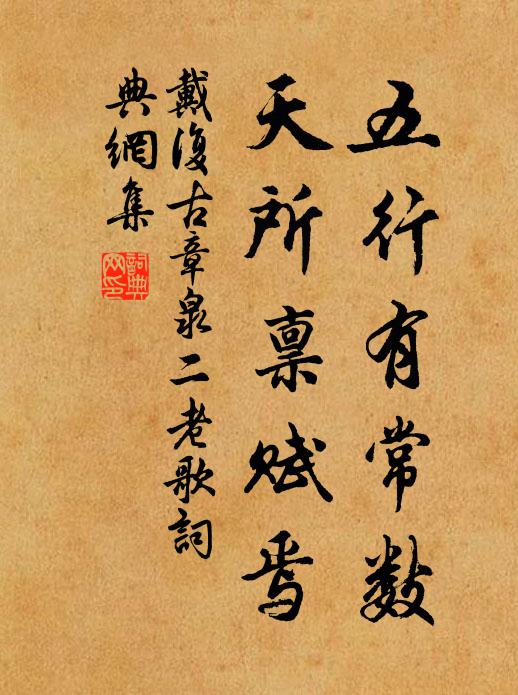 五行有常数
天所禀赋焉
戴復古章泉二老歌詞
典網集
詞典
网印